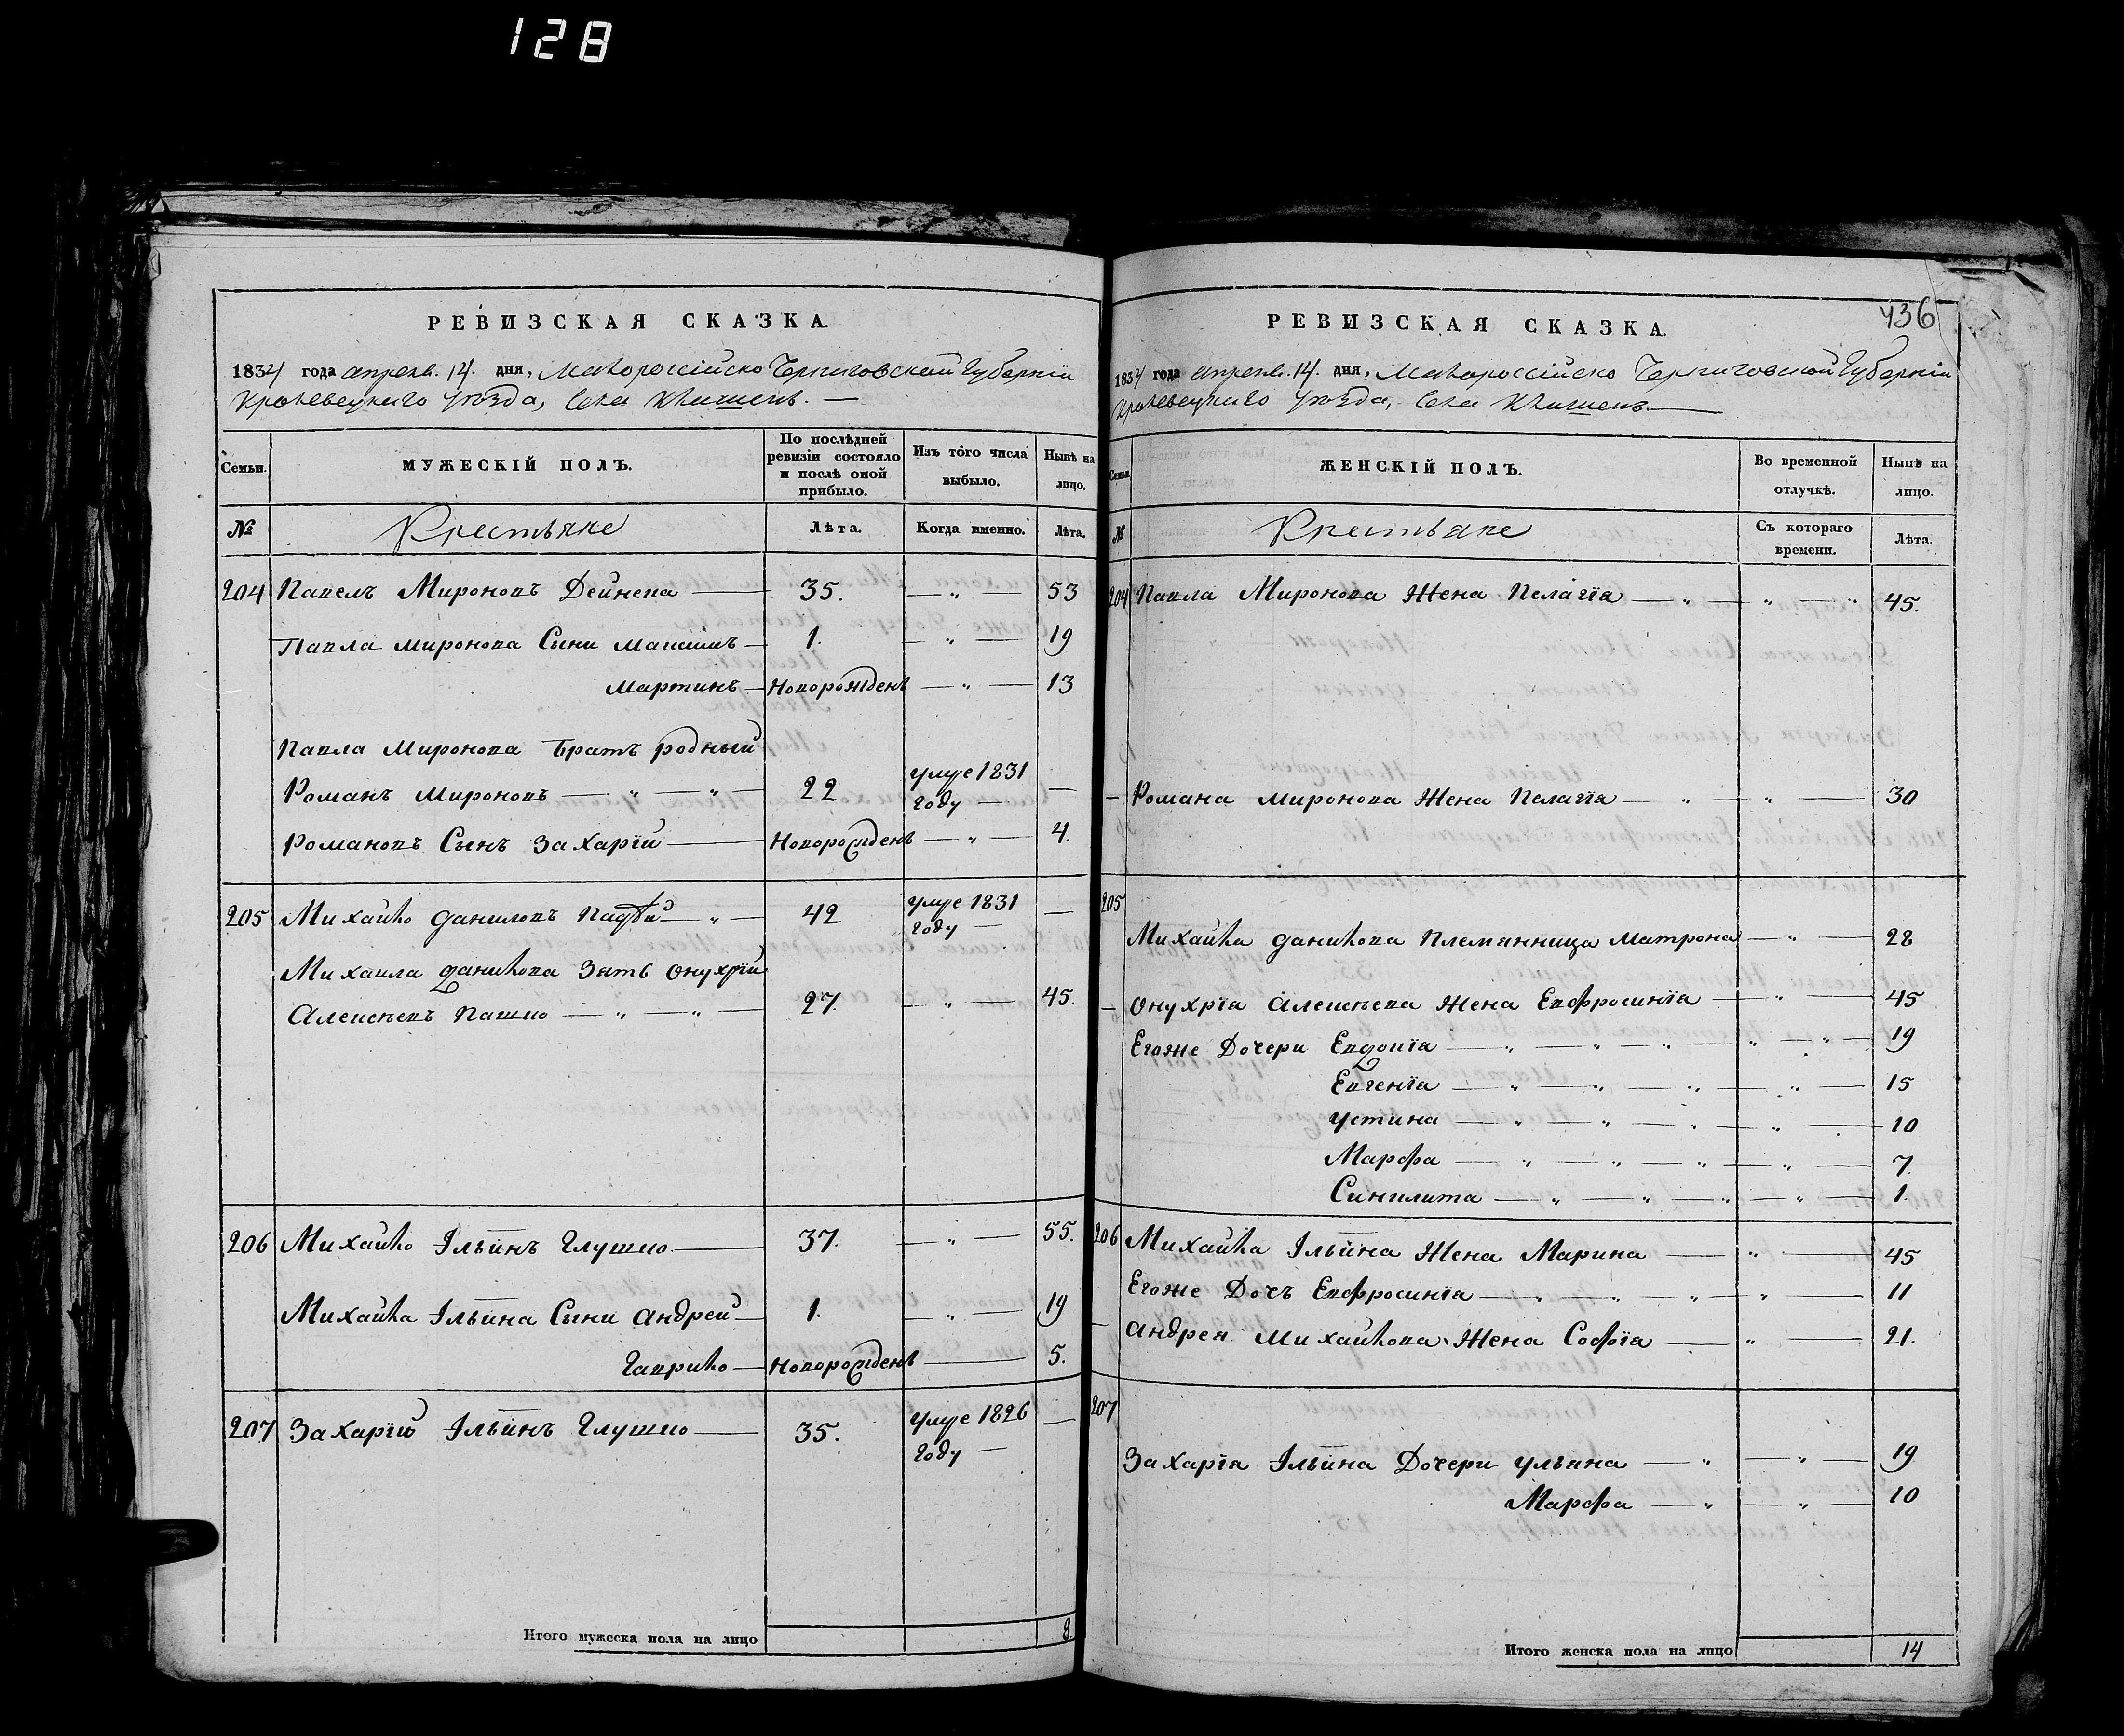 128
РЕВИЗСКАЯ СКАЗКА.
1834 года апреля 14 дня, Малороссійско Черниговской Губерніи
Кролевецкаго уѣзда, Села Клишекъ.
Семьи.
МУЖЕСКІЙ ПОЛЪ.
По послѣдней ревизіи состояло и послѣ оной прибыло.
Изъ того числа выбыло.
Нынѣ на лицо.
№ Крестьяне Лѣта. Когда именно. Лѣта.
204 Павелъ Мироновъ Дейнека 35. — „ — 53
Павла Миронова Сыни Максимъ 1. — „ — 19
Мартинъ Новорожденъ — „ — 13
Павла Миронова Братъ родный
Романъ Мироновъ — „ — „ — 22 умре 1831 году —
Романовъ Сынъ Захарій Новорожденъ — „ — 4.
205 Михайло Даниловъ 42 умре 1831 году —
Михаила Данилова Зять Онухрій
Алексѣевъ Пашко — „ — „ — 27. — „ — 45.
206 Михайло Ільинъ Глушко 37. — „ — 55.
Михайла Ільина Сыни Андрей 1. — „ — 19
Гаврило Новорожденъ — 5.
207 Захарій Ільинъ Глушко 35. умре 1826 году —
Итого мужеска пола на лицо 8.
436
РЕВИЗСКАЯ СКАЗКА.
1834 года апреля 14 дня, Малороссійско Черниговской Губерніи
Кролевецкаго уѣзда, Села Клишекъ.
Семьи.
ЖЕНСКІЙ ПОЛЪ.
Во временной отлучкѣ.
Нынѣ на лицо.
№ Крестьяне Съ котораго времени. Лѣта.
204 Павла Миронова Жена Пелагія — „ — „ — „ 45.
— Романа Миронова Жена Пелагія — „ — „ — 30
205
Михайла Данилова Племянница Матрона — „ — 28
— Онухрія Алексѣева Жена Евфросинія — „ — 45
Егоже Дочери Евдокія — „ — „ — „ — „ — „ — 19
Евгенія — „ — „ — „ — „ — 15
Устина — „ — „ — „ — „ — 10
Марфа — „ — „ — „ — „ — 7.
Синклита — „ — „ — „ — „ — 1.
206 Михайла Ільина Жена Марина — „ — 45
Егоже Дочъ Евфросинія — „ — „ — „ — „ — 11
— Андрея Михайлова Жена Софія — „ — 21.
207
Захарія Ільина Дочери Ульяна — „ — „ — 19
Марфа — „ — „ — 10
Итого женска пола на лицо 14